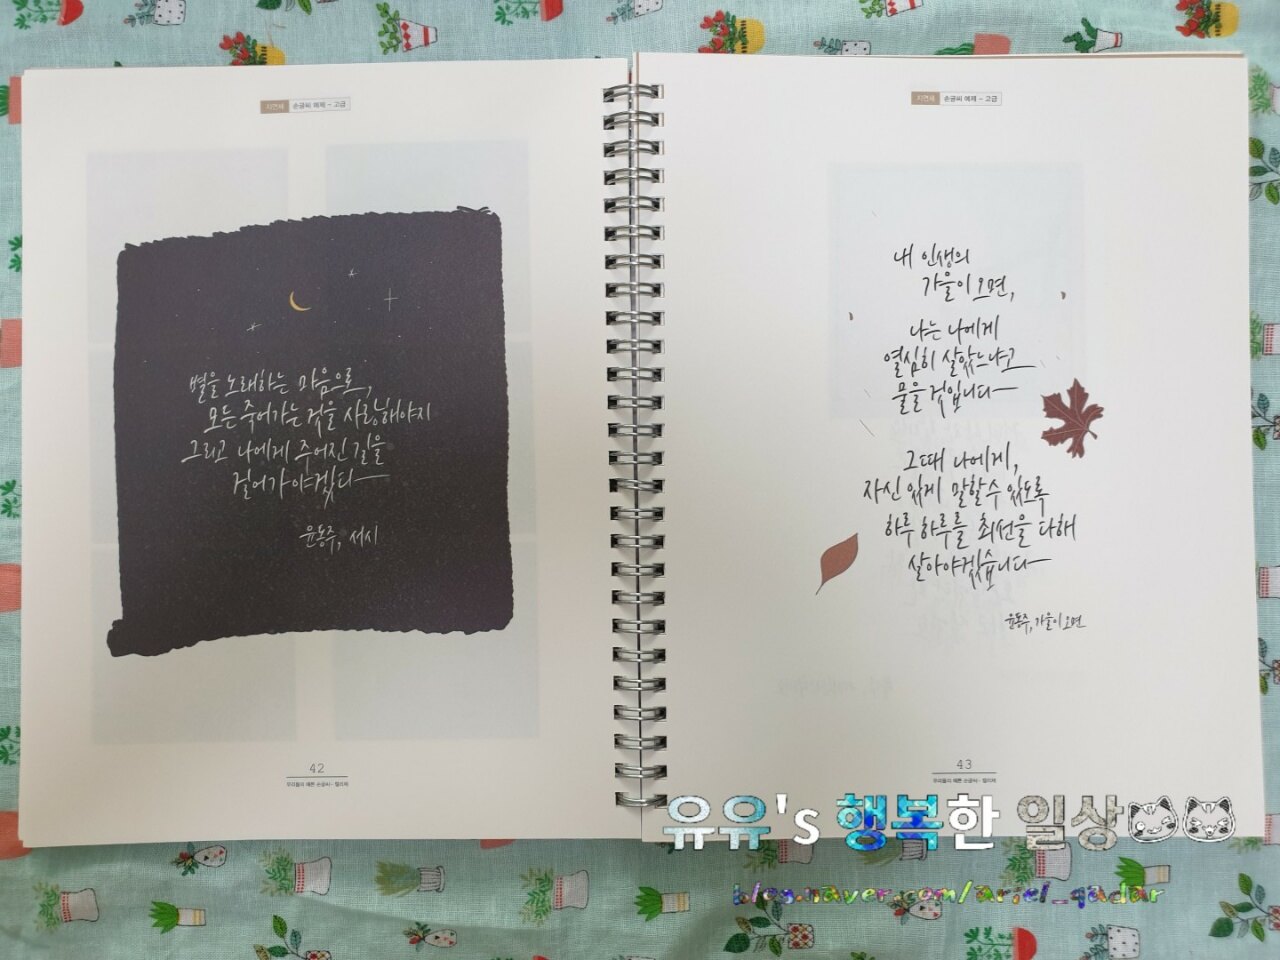 자연체 손글씨 예제 - 고급
별을 노래하는 마음으로,
모든 죽어가는 것을 사랑해야지
그리고 나에게 주어진 길을
걸어가야겠다
윤동주, 서시
42
우리들의 예쁜 손글씨 - 캘리체
자연체 손글씨 예제 - 고급
내 인생의
가을이 오면,
나는 나에게
열심히 살았느냐고
물을 것입니다
그때 나에게,
자신 있게 말할 수 있도록
하루 하루를 최선을 다해
살아야겠습니다
윤동주, 가을이 오면
43
우리들의 예쁜 손글씨 - 캘리체
유유's 행복한 일상
blog.naver.com/ariel_qadar